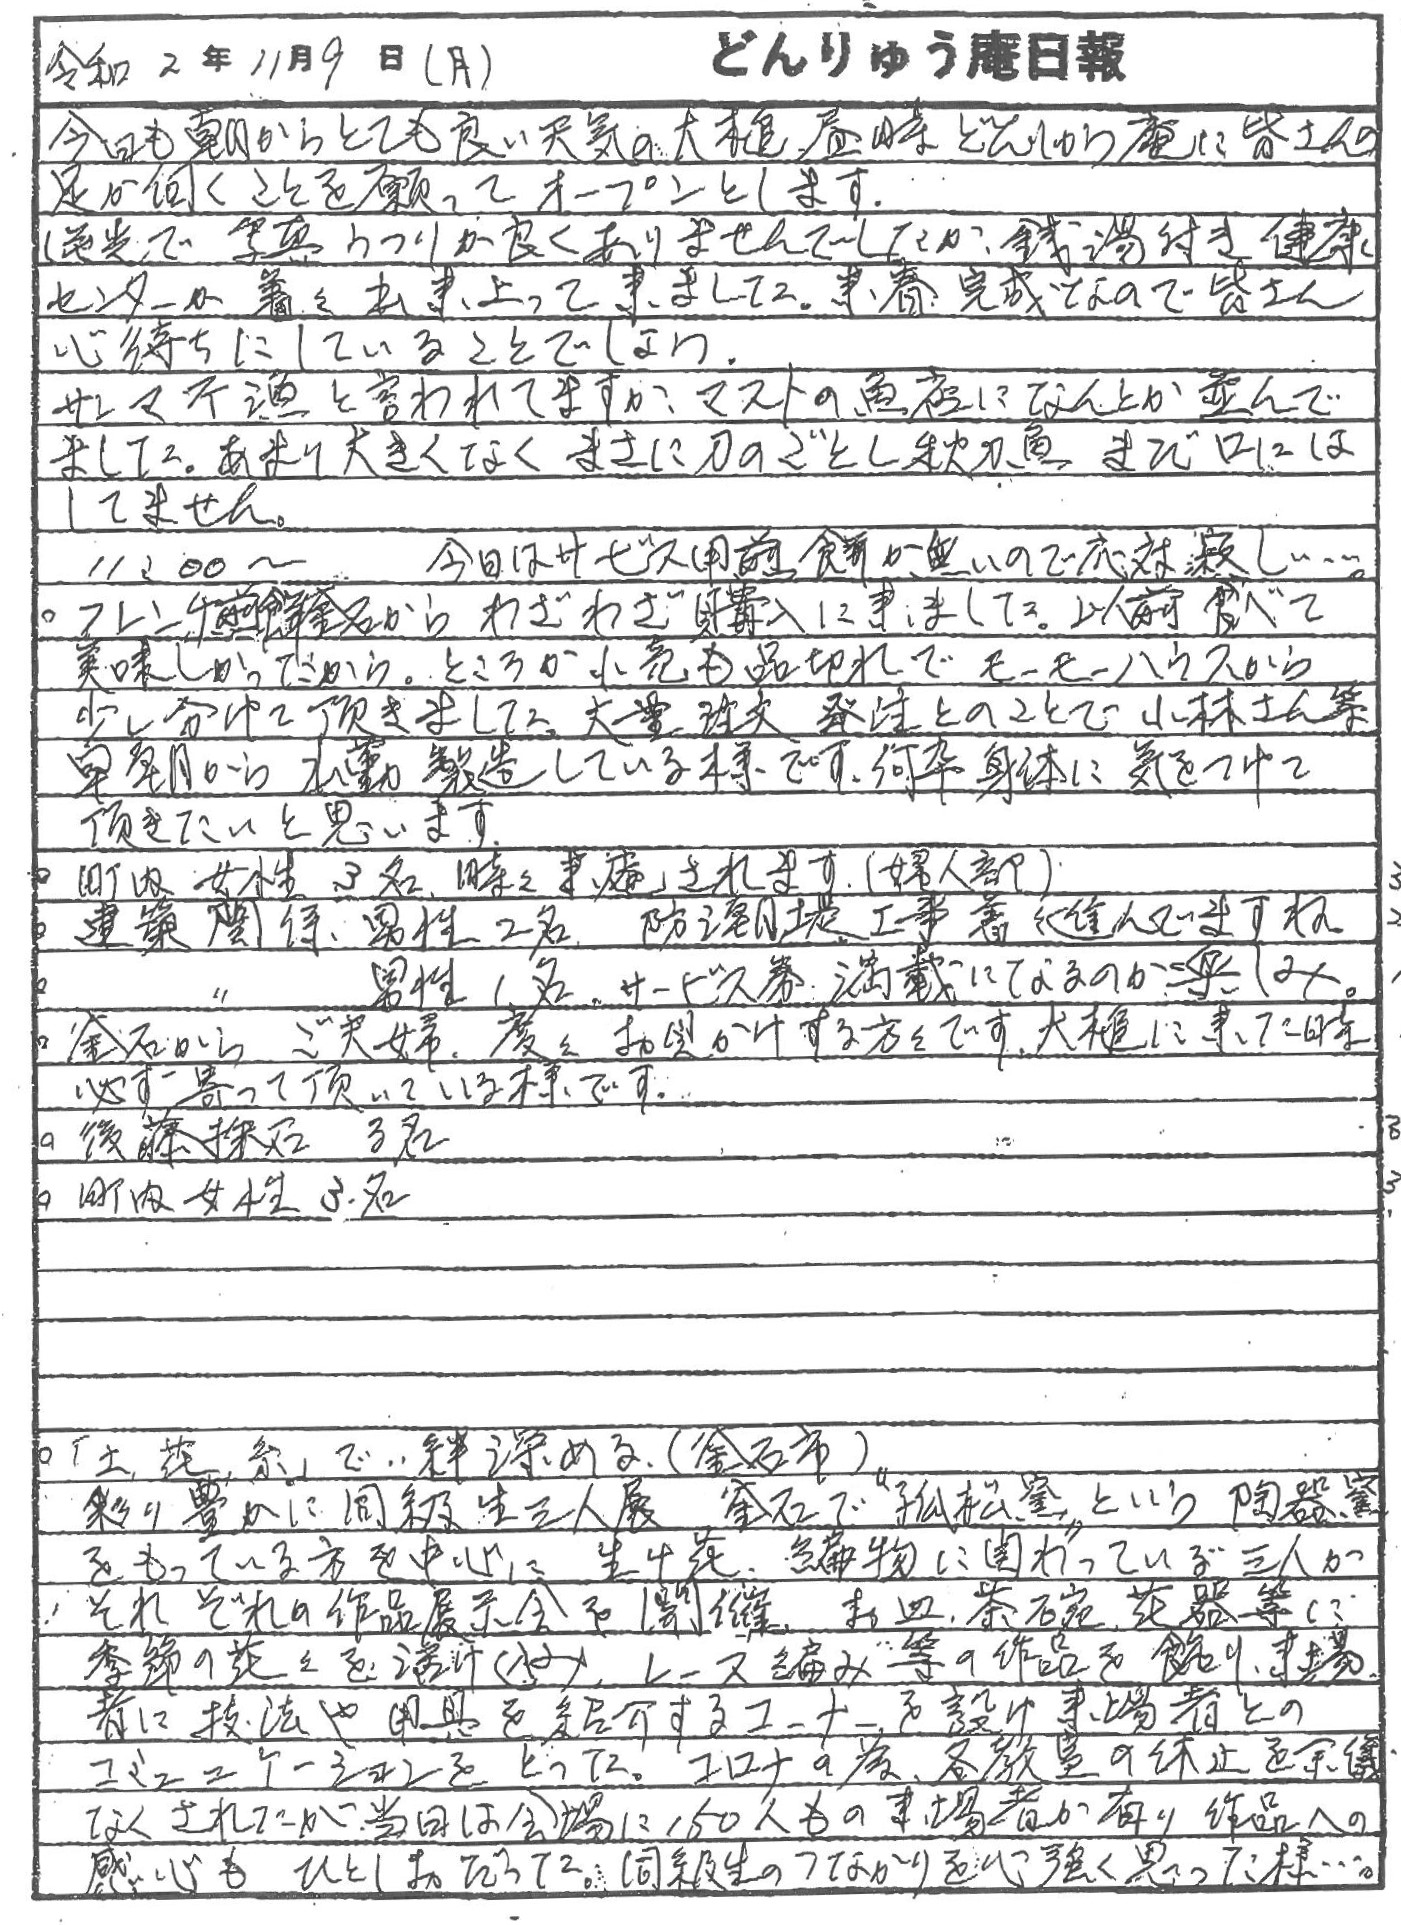 令和 2 年 11月 9 日 (月) どんりゅう庵日報
今日も朝からとても良い天気の大槌、昼時どんりゅう庵に皆さんの
足が向くことを願って オープンとします.
逆光で 写真うつりが良くありませんでしたが、銭湯付き 健康
センターが 着々 出来上って来ました。来春 完成なので皆さん
心待ちにしていることでしょう.
サンマ不漁と言われてますが、マストの魚店になんとか並んで
ました。あまり大きくなく まさに刀のごとし秋刀魚 まだ口には
してません。
11:00〜 今日はサービス用煎餅が無いので応対寂し……。
○ フレンチ煎餅釜石から わざわざ購入に来ました。以前食べて
美味しかったから。ところが小売も品切れで モーモーハウスから
少し分けて頂きました。大量注文 発注とのことで 小林さん等
早朝から出勤 製造している様です、何卒身体に気をつけて
頂きたいと思います.
○ 町内 女性 3名、時々来庵されます.(婦人部) 3
○ 建築関係、男性 2名 防潮堤工事着々進んでますね。 2
○ 〃 男性 1名、サービス券 満載になるのが楽しみ。
○ 釜石から ご夫婦、度々お見かけする方々です、大槌に来た時
必ず寄って頂いている様です。
○ 後藤採石 3名 3
○ 町内女性 3名 3
○「土, 花, 糸」で‥絆深める.(釜石市)
彩り豊かに同級生三人展 釜石で“孤松窯”という 陶器窯
をもっている方を中心に 生け花、編物に関わっている三人が
それぞれの作品展示会を開催、お皿、茶碗、花器等に
季節の花々を活け(込み)、レース編み等の作品を飾り、来場
者に技法や用具を紹介するコーナーを設け来場者との
コミュニケーションをとった。コロナの為、各教室の休止を余儀
なくされたが、当日は会場に150人もの来場者が有り 作品への
感心も ひとしおだった。同級生のつながりを心強く思った様…。